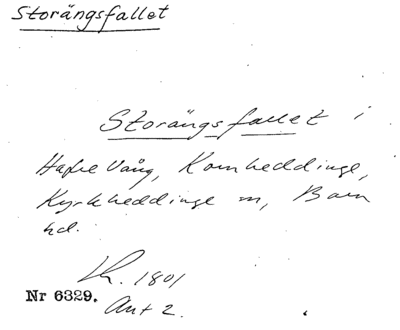 Storängsfallet
Storängsfallet i
Hafre Vång, Kornheddinge,
Kyrkheddinge m, Bara
hd.
Lh. 1801
Nr 6329.
Akt 2.